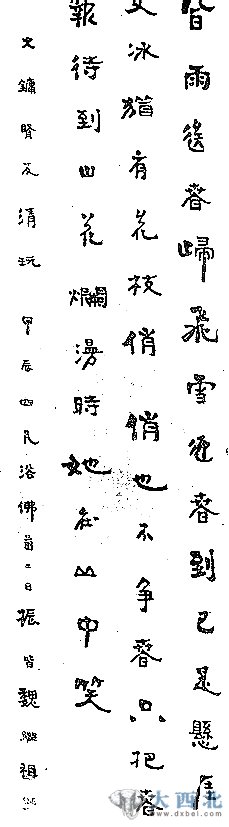 雨送春歸飛雪迎春到已是懸厓
丈冰猶有花枝俏俏也不争春只把春
報待到山花爛漫時她在丛中笑
文鏞賢友清玩甲辰四月浴佛前二日振皆魏繼祖
大西北
www.dxbei.com